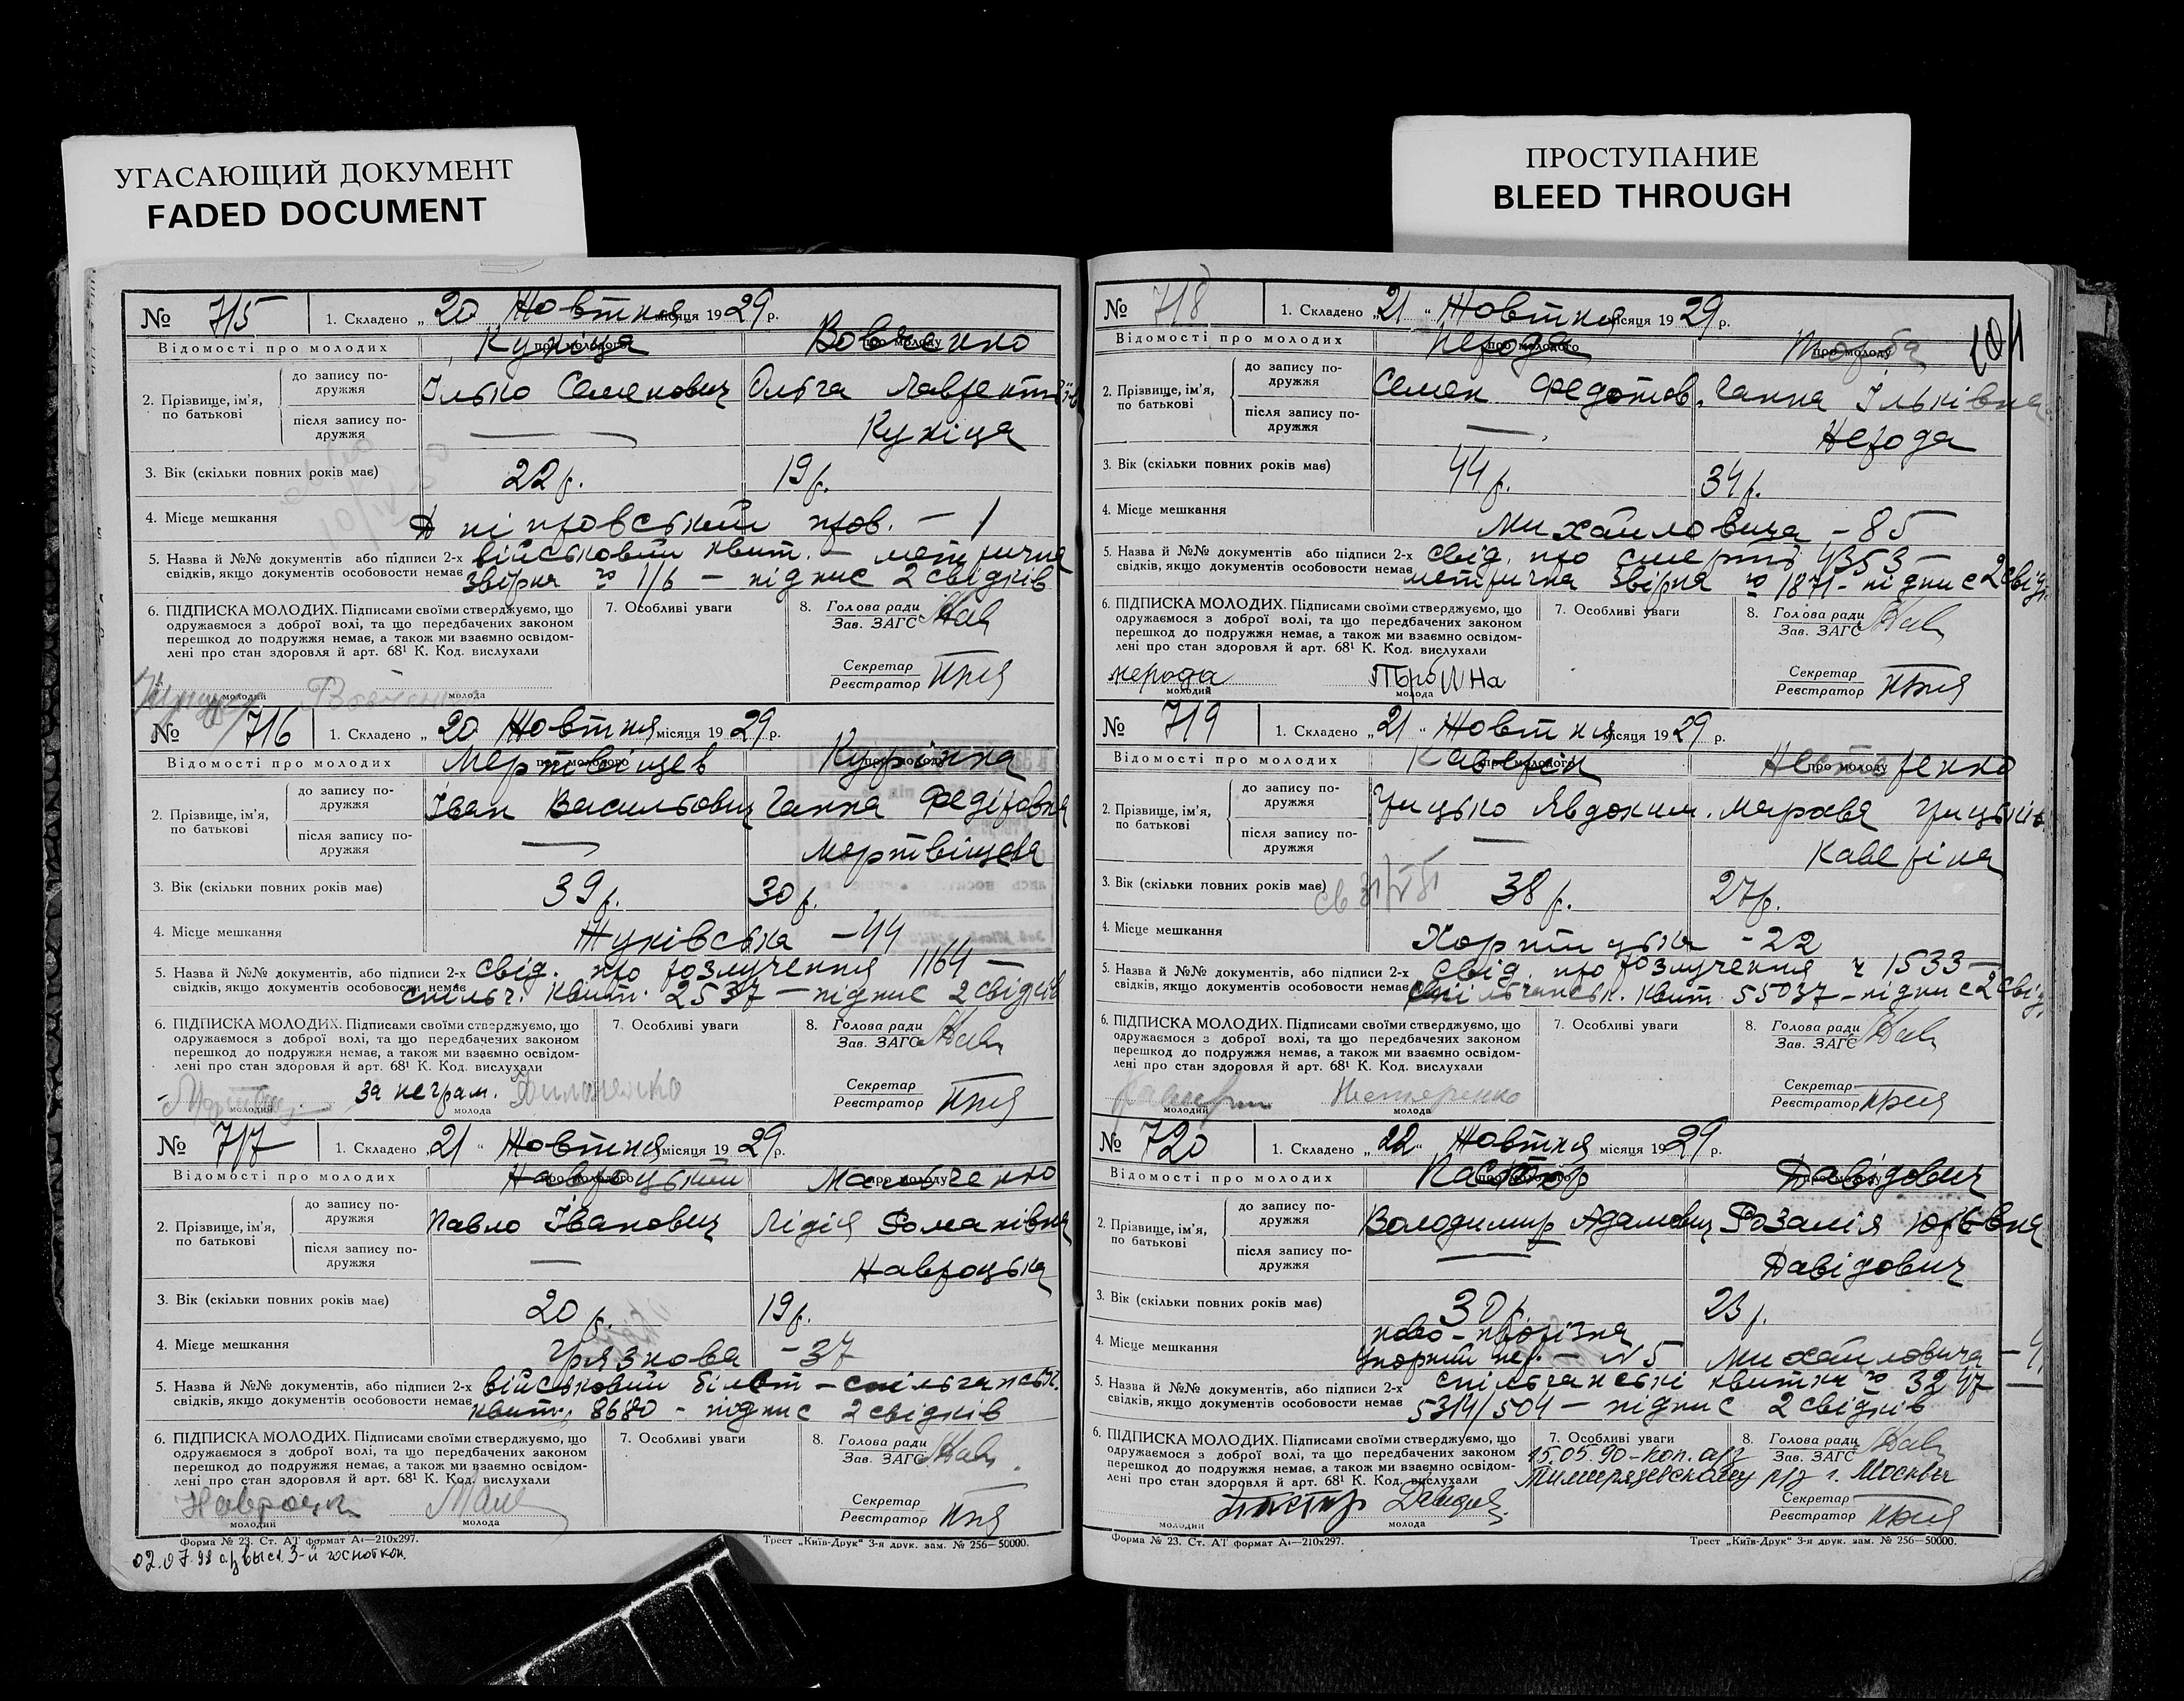 УГАСАЮЩИЙ ДОКУМЕНТ
FADED DOCUMENT
ПРОСТУПАНИЕ
BLEED THROUGH
№ 715 1. Складено „ 20 Жовтня місяця 1929 р.
Відомості про молодих про молодого Куніця про молоду Вовченко
2. Прізвище, ім'я, по батькові
до запису подружжя Ілько Семенович Ольга Лаврентіїв
після запису подружжя — Куніця
3. Вік (скільки повних років має) 22 р. 19 р.
4. Місце мешкання Дніпровський пров. – 1
5. Назва й №№ документів або підписи 2-х військовий квит. – метрична
свідків, якщо документів особовости немає звірка № 1/6 – підпис 2 свідків
6. ПІДПИСКА МОЛОДИХ. Підписами своїми стверджуємо, що
одружаємося з доброї волі, та що передбачених законом
перешкод до подружжя немає, а також ми взаємно освідом-
лені про стан здоровля й арт. 68¹ К. Код. вислухали
молодий молода
7. Особливі уваги
8. Голова ради
Зав. ЗАГС
Секретар
Реєстратор
№ 716 1. Складено „ 20 Жовтня місяця 1929 р.
Відомості про молодих про молодого Мертвіщев про молоду Курінна
2. Прізвище, ім'я, по батькові
до запису подружжя Іван Васильович Ганна Федірівна
після запису подружжя — Мертвіщева
3. Вік (скільки повних років має) 39 р. 30 р.
4. Місце мешкання Жуківська – 44
5. Назва й №№ документів, або підписи 2-х свід. про розлучення 1164 –
свідків, якщо документів особовости немає спільч. квит. 2537 – підпис 2 свідків
6. ПІДПИСКА МОЛОДИХ. Підписами своїми стверджуємо, що
одружаємося з доброї волі, та що передбачених законом
перешкод до подружжя немає, а також ми взаємно освідом-
лені про стан здоровля й арт. 68¹ К. Код. вислухали
за неграм.
молодий молода
7. Особливі уваги
8. Голова ради
Зав. ЗАГС
Секретар
Реєстратор
№ 717 1. Складено 21 “ Жовтня місяця 1929 р.
Відомості про молодих про молодого Навроцький про молоду Мальченко
2. Прізвище, ім'я, по батькові
до запису подружжя Павло Іванович Лідія Романівна
після запису подружжя — Навроцька
3. Вік (скільки повних років має) 20 р. 19 р.
4. Місце мешкання Грязнова – 37
5. Назва й №№ документів, або підписи 2-х військовий білєт – спільчанськ.
свідків, якщо документів особовости немає квит. 8680 – підпис 2 свідків
6. ПІДПИСКА МОЛОДИХ. Підписами своїми стверджуємо, що
одружаємося з доброї волі, та що передбачених законом
перешкод до подружжя немає, а також ми взаємно освідом-
лені про стан здоровля й арт. 68¹ К. Код. вислухали
молодий молода
7. Особливі уваги
8. Голова ради
Зав. ЗАГС
Секретар
Реєстратор
Форма № 23. Ст. АТ формат А₄—210x297. Трест „Київ-Друк“ 3-я друк. зам. № 256—50000.
№ 718 1. Складено „ 21 “ Жовтня місяця 1929 р.
Відомості про молодих про молодого Нерода про молоду 101
2. Прізвище, ім'я, по батькові
до запису подружжя Семен Федотов. Ганна Ільківна
після запису подружжя — Нерода
3. Вік (скільки повних років має) 44 р. 34 р.
4. Місце мешкання Михайловича – 85
5. Назва й №№ документів або підписи 2-х свід. про смерть 4353 –
свідків, якщо документів особовости немає метрична звірка № 1871 – підпис 2 свід
6. ПІДПИСКА МОЛОДИХ. Підписами своїми стверджуємо, що
одружаємося з доброї волі, та що передбачених законом
перешкод до подружжя немає, а також ми взаємно освідом-
лені про стан здоровля й арт. 68¹ К. Код. вислухали
нерода
молодий молода
7. Особливі уваги
8. Голова ради
Зав. ЗАГС
Секретар
Реєстратор
№ 719 1. Складено „ 21 “ Жовтня місяця 1929 р.
Відомості про молодих про молодого Каверін про молоду Нестеренко
2. Прізвище, ім'я, по батькові
до запису подружжя Грицько Явдоким. Мархва Грицьків
після запису подружжя — Каверіна
3. Вік (скільки повних років має) 38 р. 27 р.
4. Місце мешкання Хортицька – 22
5. Назва й №№ документів, або підписи 2-х свід. про розлучення ч 1533 –
свідків, якщо документів особовости немає спільчанськ. квит. 55037 – підпис 2 свід
6. ПІДПИСКА МОЛОДИХ. Підписами своїми стверджуємо, що
одружаємося з доброї волі, та що передбачених законом
перешкод до подружжя немає, а також ми взаємно освідом-
лені про стан здоровля й арт. 68¹ К. Код. вислухали
Нестеренко
молодий молода
7. Особливі уваги
8. Голова ради
Зав. ЗАГС
Секретар
Реєстратор
№ 720 1. Складено „ 22 “ Жовтня місяця 1929 р.
Відомості про молодих про молодого Пастор про молоду Давідович
2. Прізвище, ім'я, по батькові
до запису подружжя Володимир Адамович Розалія Юрьєвна
після запису подружжя — Давідович
3. Вік (скільки повних років має) 30 р. 23 р.
4. Місце мешкання № 5 Михайловича
5. Назва й №№ документів, або підписи 2-х спільчанські квитки № 3247 –
свідків, якщо документів особовости немає 5314/504 – підпис 2 свідків
6. ПІДПИСКА МОЛОДИХ. Підписами своїми стверджуємо, що
одружаємося з доброї волі, та що передбачених законом
перешкод до подружжя немає, а також ми взаємно освідом-
лені про стан здоровля й арт. 68¹ К. Код. вислухали
молодий молода
7. Особливі уваги
15.05.90 – коп. а/з
Тимирязевскому р/з г. Москвы
8. Голова ради
Зав. ЗАГС
Секретар
Реєстратор
Форма № 23. Ст. АТ формат А₄—210x297. Трест „Київ-Друк“ 3-я друк. зам. № 256—50000.